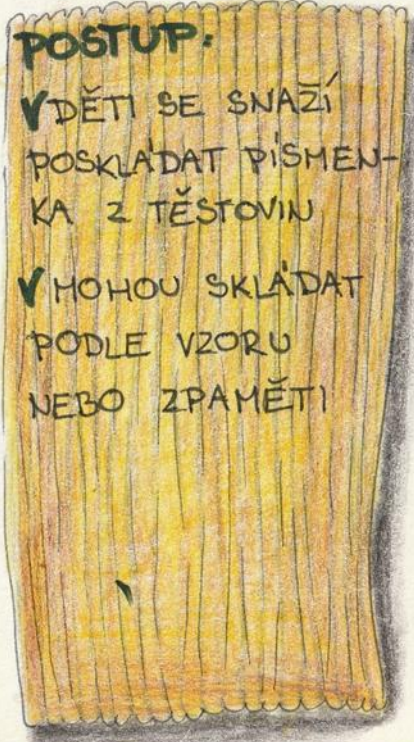 POSTUP:
✓DĚTI SE SNAŽÍ
POSKLÁDAT PÍSMEN-
KA Z TĚSTOVIN
✓MOHOU SKLÁDAT
PODLE VZORU
NEBO ZPAMĚTI